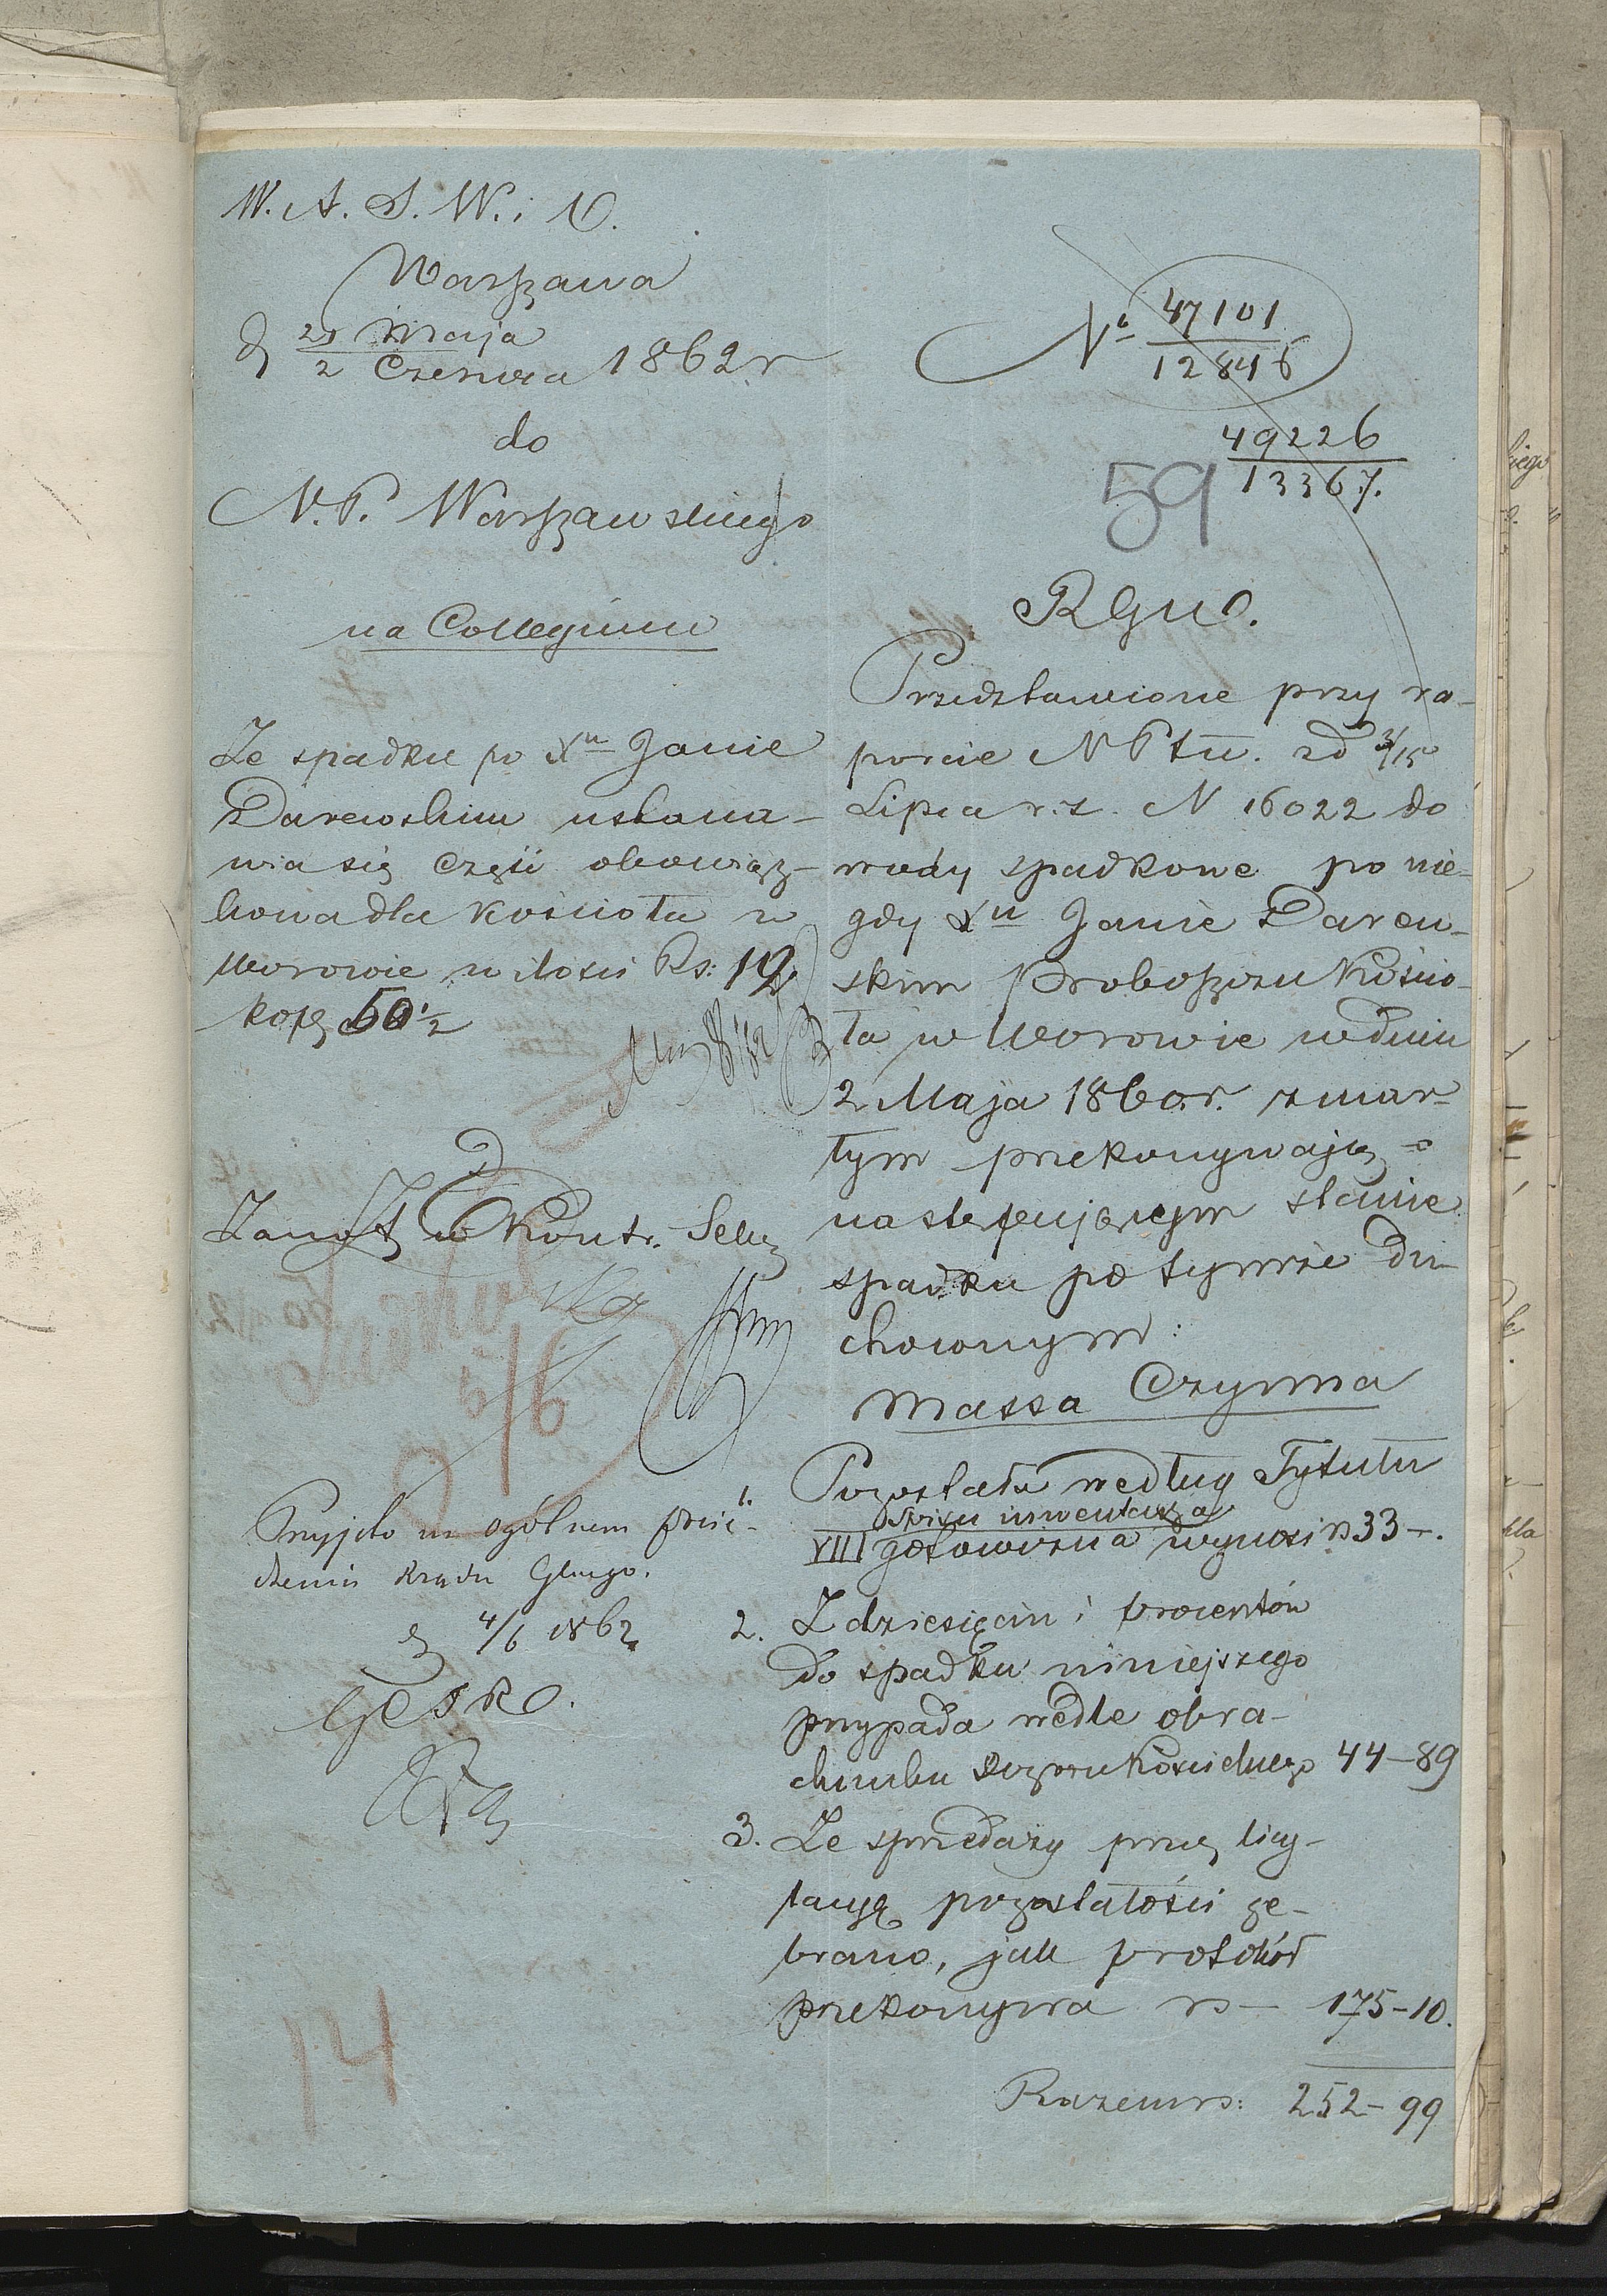 W. A. S. W. i D.
Warszawa
d 21 Maja
2 Czerwca 1862 r
do
N. P. Warszawskiego
na Collegium
Ze spadku po Xu Janie
Darewskim ustana-
wia się część obowiąz-
kowa dla kościoła w
Worowie w ilości Rs: 12
kop 50 1/2
Zanot w Kontr.
Przyjęto na ogólnem posie-
dzeniu Rządu Glnego.
d 4/6 1862
No 47101
12846
49226
13367.
59
RGWD.
Przedstawione przy ra-
porcie NPtu. z d 3/15
Lipca r. z. N 16022 do
wody spadkowe po nie-
gdy Xu Janie Darew-
skim Proboszczu Kościo-
ła w Worowie w dniu
2 Maja 1860 r. zmar-
tym przekonywają o
następującym stanie
spadku po tymże du-
chownym:
Massa Czynna
1. Pozostała według Tytułu
spisu inwentarza
VIII gotowizna wynosi rs 33 -.
2. Z dziesięcin i procentów
do spadku niniejszego
przypada wedle obra-
chunku Dozoru Kościelnego 44-89
3. Ze sprzedaży przez licy-
tacyą pozostałości ze-
brano, jak protokół
przekonywa rs - 175-10.
Razem rs: 252-99
14